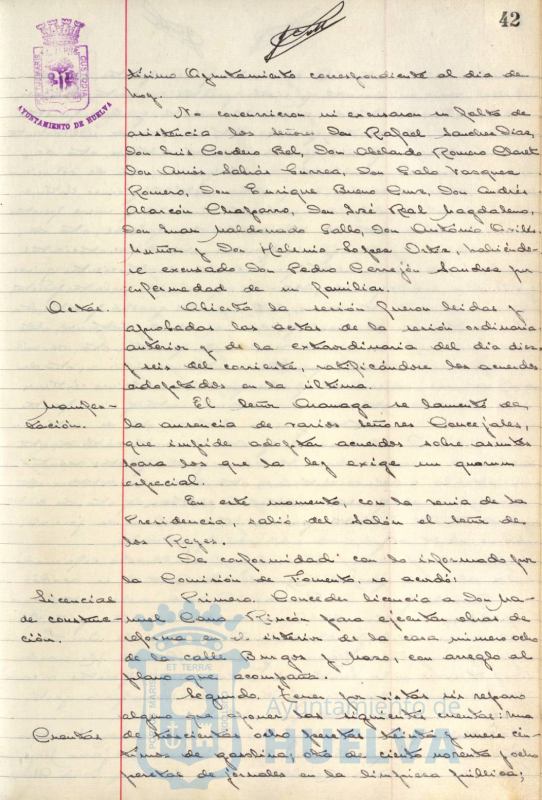 42
AYUNTAMIENTO DE HUELVA
tísimo Ayuntamiento correspondiente al día de
hoy.
No concurrieron ni excusaron su falta de
asistencia los señores Don Rafael Sanchez Díaz,
Don Luis Cordero Bel, Don Abelardo Romero Claret
Don Amós Sabrás Gurrea, Don Galo Vazquez
Romero, Don Enrique Bueno Cruz, Don Andrés
Alarcón Chaparro, Don José Real Magdaleno,
Don Juan Maldonado Gallo, Don António
Muñoz y Don Helenio Lopez Ortiz, habiéndo-
se excusado Don Pedro Cerrejón Sanchez por
enfermedad de un familiar.
Actas.
Abierta la sesión fueron leidas y
aprobadas las actas de la sesión ordinaria
anterior y de la extraordinaria del día diez
y seis del corriente, ratificándose los acuerdos
adoptados en la última.
Manifes-
tación.
El Señor se lamentó de
la ausencia de varios señores Concejales,
que impide adoptar acuerdos sobre asuntos
para los que la ley exige un quorum
especial.
En este momento, con la venia de la
Presidencia, salió del Salón el Señor de
los Reyes.
De conformidad con lo informado por
la Comisión de Fomento, se acordó:
Licencias
de construc-
ción.
Primero. Conceder licencia a Don Ma-
nuel Cano Rincón para ejecutar obras de
reforma en el interior de la casa número ocho
de la calle Burgos y Mazo, con arreglo al
plano que acompaña.
Cuentas
Segundo. Tener por vistas sin reparo
alguno que oponer las siguientes cuentas: una
de trescientas ocho pesetas treinta y nueve cén-
timos de gasolina; otra de ciento noventa y ocho
pesetas de jornales en la limpieza pública;
PORTUS MARIS ET TERRAE CUSTODIA
Ayuntamiento de
HUELVA